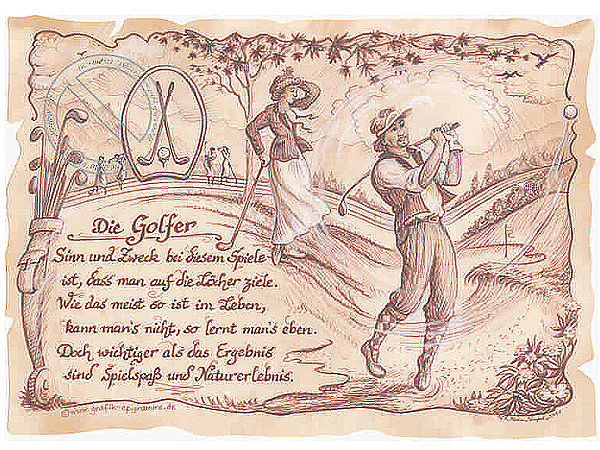 Die Golfer
Sinn und Zweck bei diesem Spiele
ist, dass man auf die Löcher ziele.
Wie das meist so ist im Leben,
kann man's nicht, so lernt man's eben.
Doch wichtiger als das Ergebnis
sind Spielspaß und Naturerlebnis.
©www.grafik-epigramme.de